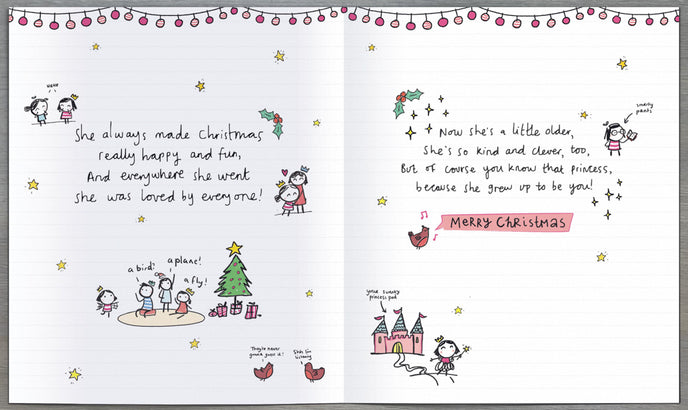 hehe
She always made Christmas
really happy and fun,
And everywhere she went
she was loved by everyone!
a bird!
a plane!
a fly!
They're never
gonna guess it!
Shh I'm
listening
Now she's a little older,
She's so kind and clever, too,
But of course you know that princess,
because she grew up to be you!
smarty
pants
MERRY CHRISTMAS
your swanky
princess pad